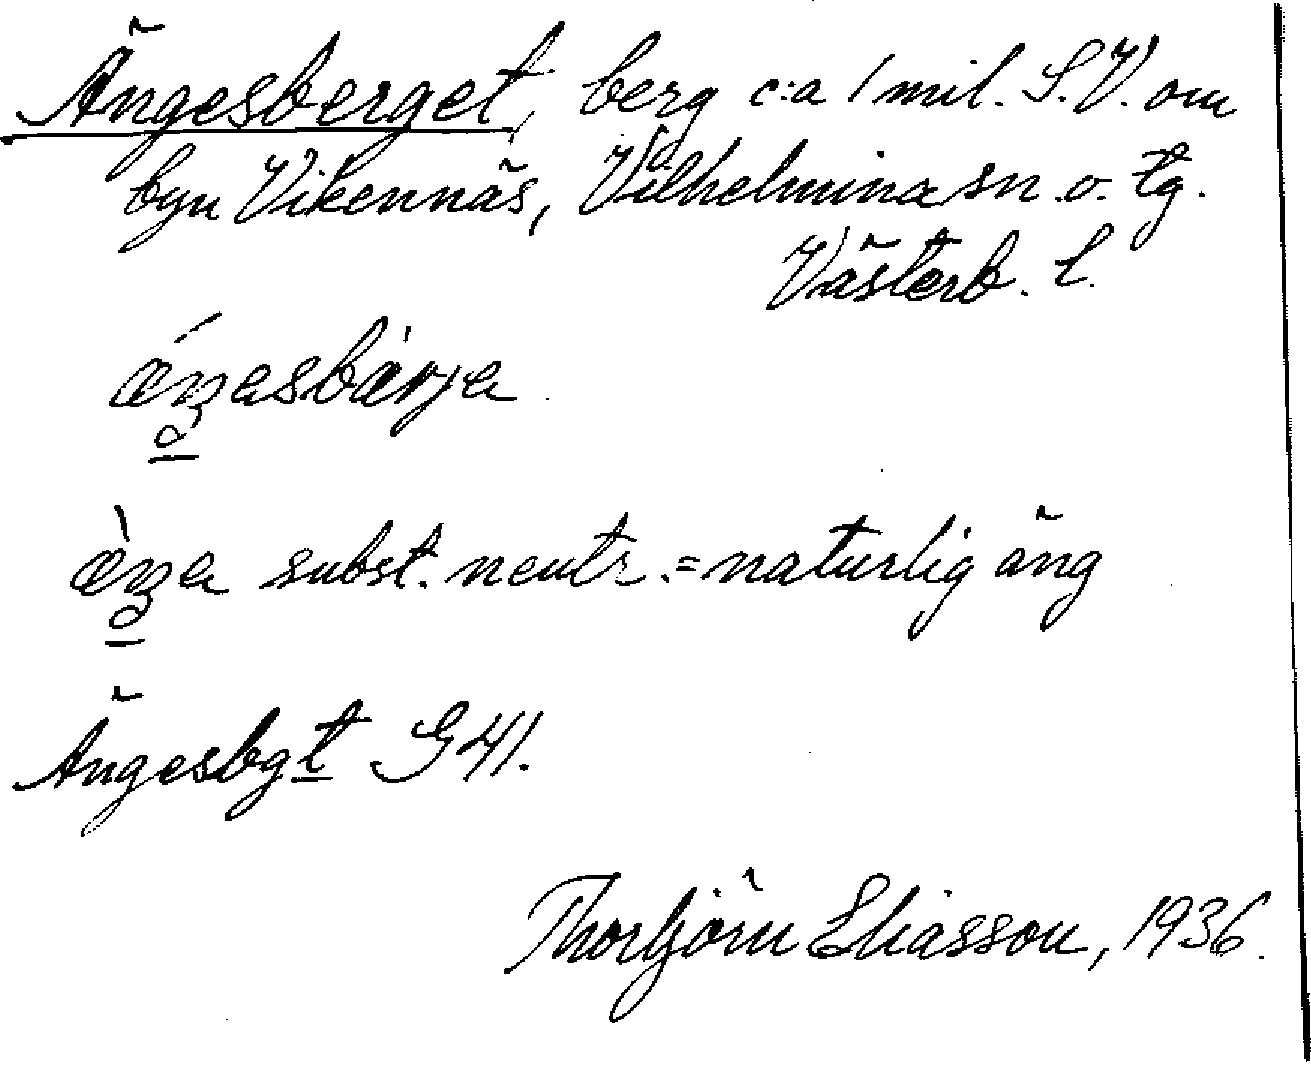 Ängesberget, berg c:a 1 mil. S.V. om
byn Vikennäs, Vilhelmina sn. o. tg.
Västerb. l.
ǽŋesbærje
æ̀ŋe subst. neutr. = naturlig äng
Ängesbgt G 41.
Thorbjörn Eliasson, 1936.